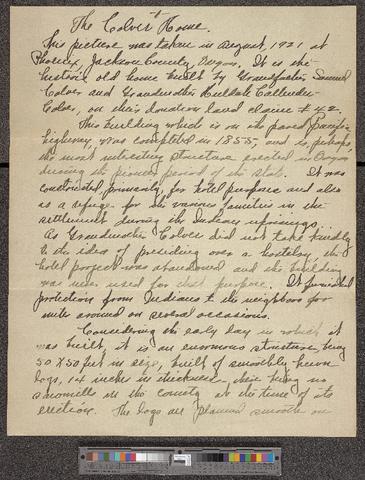 The Colver Home.
This picture was taken in August, 1921 at
Phoenix, Jackson County, Oregon. It is the
historic old home built by Grandfather Samuel
Colver and Grandmother Huldah Callender
Colver, on their donation land claim #42.
This building which is on the paved Pacific
highway, was completed in 1855, and is, perhaps,
the most interesting structure erected in Oregon
during the pioneer period of the state. It was
constructed, primarily, for hotel purposes and also
as a refuge for the various families in the
settlement during the Indian uprisings.
As Grandmother Colver did not take kindly
to the idea of presiding over a hostelry, the
hotel project was abandoned and the building
was never used for that purpose. It furnished
protection from Indians to the neighbors for
miles around on several occasions.
Considering the early day in which it
was built, it is an enormous structure, being
50 X 50 feet in size, built of smoothly hewn
logs, 14 inches in thickness, there being no
sawmills in the county at the time of its
erection. The logs are planed smooth on